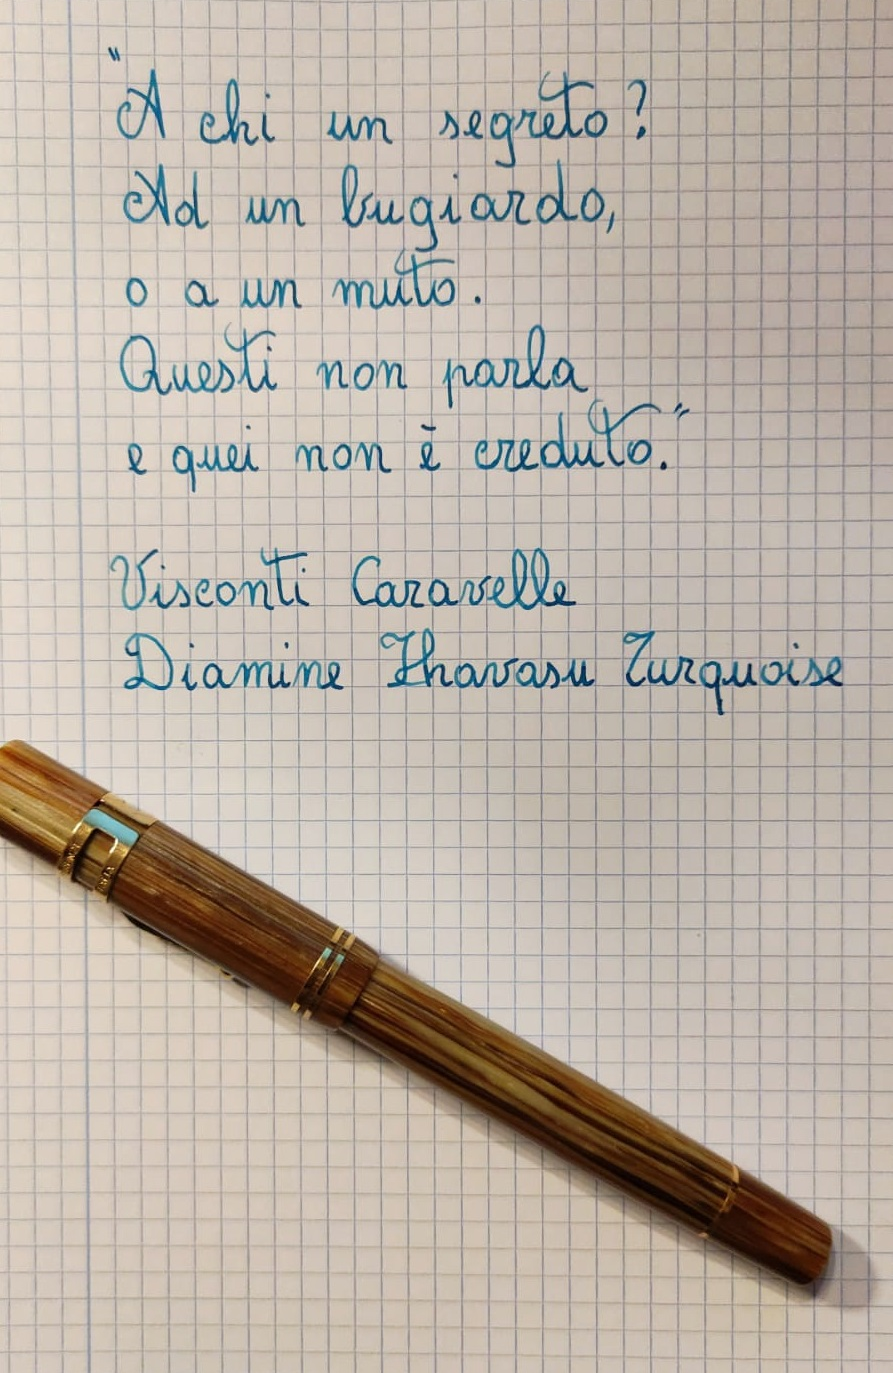 "A chi un segreto?
Ad un bugiardo,
o a un muto.
Questi non parla
e quei non è creduto."
Visconti Caravelle
Diamine Havasu Turquoise